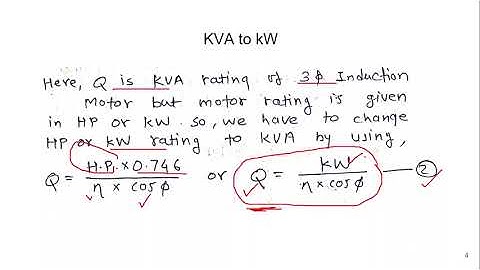 KVA to kW
Here, Q is KVA rating of 3ϕ Induction
Motor but motor rating is given
in HP or kW. so, we have to change
HP or kW rating to KVA by using,
Q = H.P. × 0.746 / η × cosϕ or Q = kW / η × cosϕ — ②
4